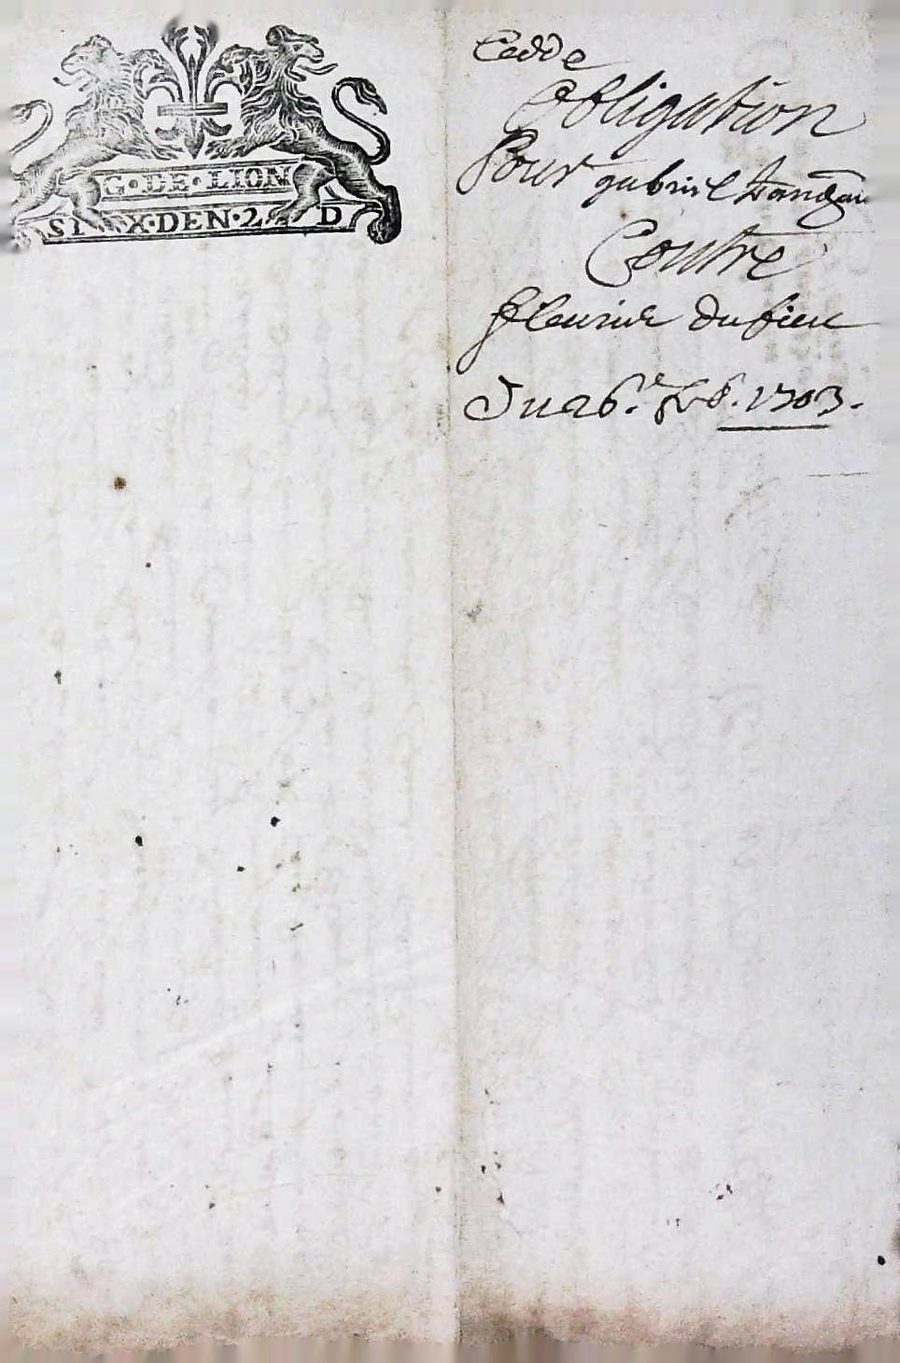 G·DE·LION
SIX·DEN·2 D
Cedde
Obligation
Pour gabriel
Contre
fleurie du fieu
Du 26.e 1703.